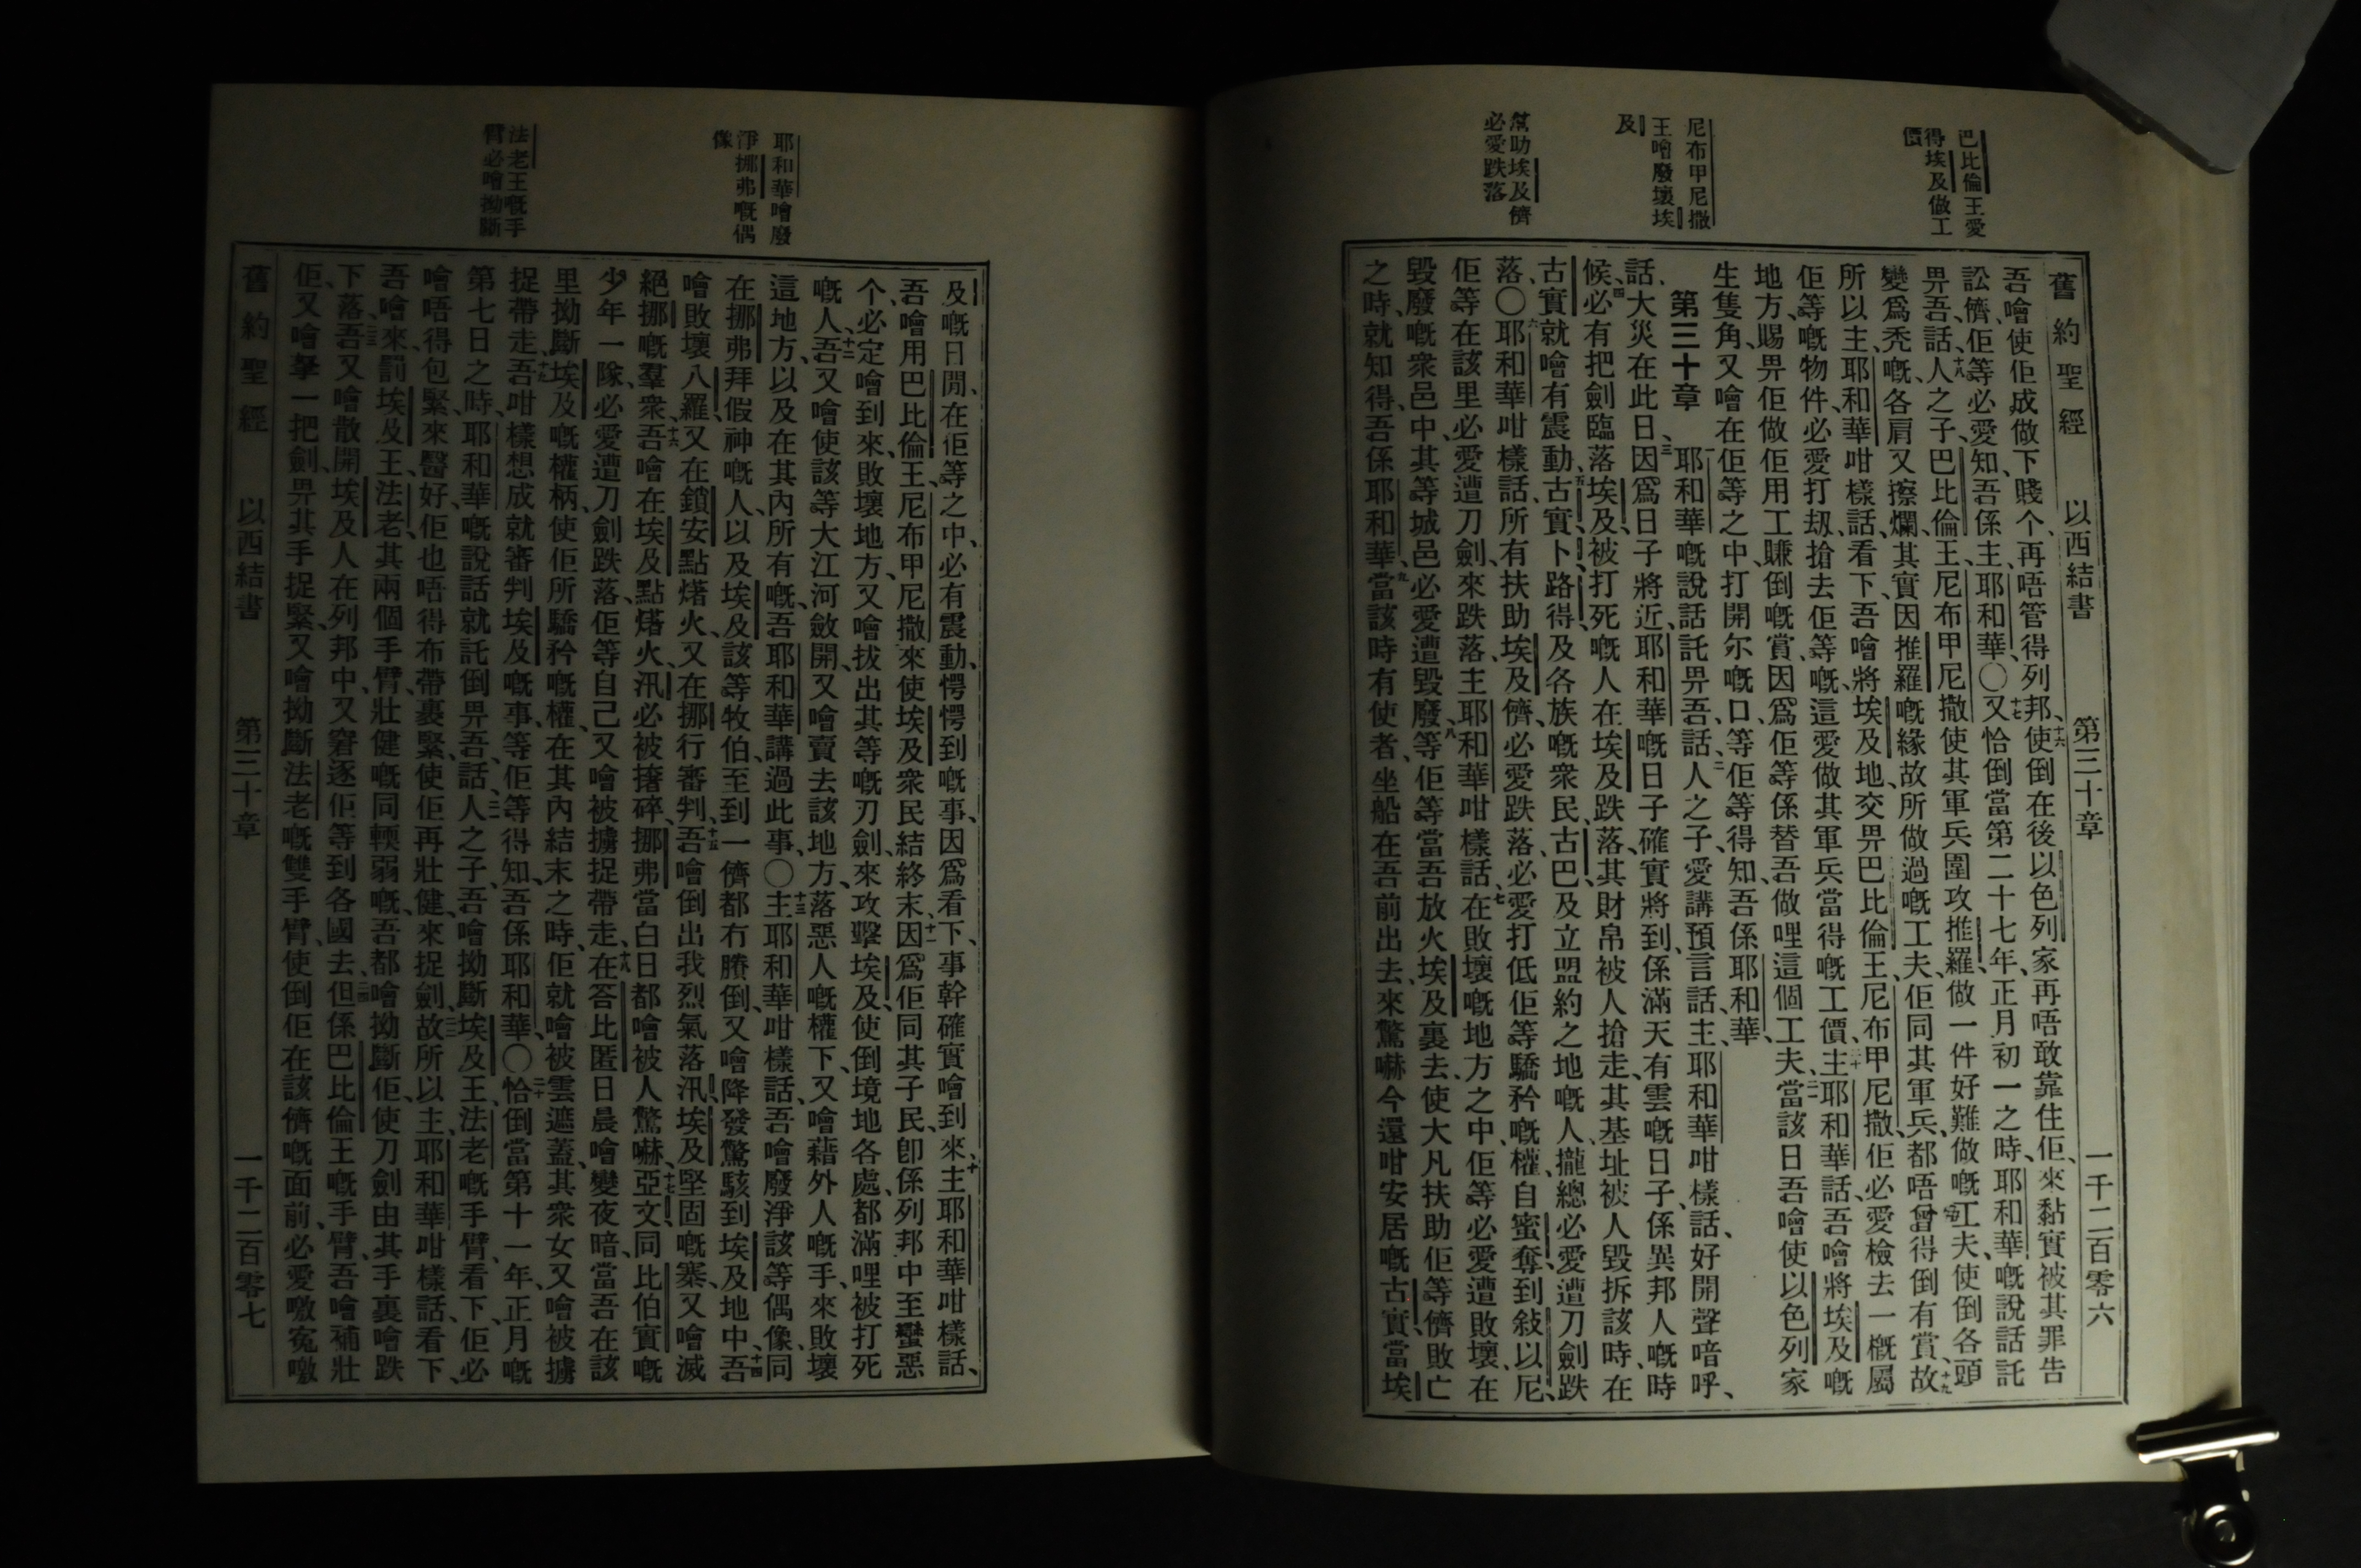 巴比倫王愛
得埃及做工
價
尼布甲尼撒
王噲廢壞埃
及
幫助埃及儕
必愛跌落
舊約聖經 以西結書 第三十章 一千二百零六
吾噲使佢成做下賤个、再唔管得列邦、十六使倒在後以色列家再唔敢靠住佢、來黏實被其罪告
訟儕、佢等必愛知、吾係主耶和華〇十七又恰倒當第二十七年、正月初一之時、耶和華嘅說話託
畀吾、話、十八人之子、巴比倫王、尼布甲尼撒使其軍兵圍攻推羅、做一件好難做嘅工夫、使倒各頭
變爲禿嘅、各肩又擦爛、其實因推羅嘅緣故、所做過嘅工夫、佢同其軍兵、都唔曾得倒有賞、十九故
所以主耶和華咁樣話、看下、吾噲將埃及地、交畀巴比倫王、尼布甲尼撒、佢必愛檢去一概屬
佢等嘅物件、必愛打刼、搶去佢等嘅、這愛做其軍兵當得嘅工價、二十主耶和華話、吾噲將埃及嘅
地方、賜畀佢做佢用工賺倒嘅賞、因爲佢等係替吾做哩這個工夫、二一當該日吾噲使以色列家
生隻角、又噲在佢等之中、打開尔嘅口、等佢等得知、吾係耶和華、
第三十章 一耶和華嘅說話、託畀吾、話、二人之子、愛講預言話、主耶和華咁樣、話、好開聲喑呼、
話、大災在此日、三因爲日子將近、耶和華嘅日子確實將到、係滿天有雲嘅日子、係異邦人嘅時
候、四必有把劍臨落埃及、被打死嘅人在埃及跌落、其財帛被人搶走、其基址被人毀拆該時、在
古實就噲有震動、五古實、卜路得、及各族嘅衆民、古巴、及立盟約之地嘅人、攏總必愛遭刀劍跌
落、〇六耶和華咁樣話、所有扶助埃及儕、必愛跌落、必愛打低佢等驕矜嘅權、自蜜奪到敍以尼、
佢等在該里必愛遭刀劍、來跌落、主耶和華咁樣話、七在敗壞嘅地方之中、佢等必愛遭敗壞、在
毀廢嘅衆邑中、其等城邑必愛遭毀廢、八等佢等當吾放火埃及裏去、使大凡扶助佢等儕敗亡
之時、就知得、吾係耶和華、九當該時有使者、坐船在吾前出去、來驚嚇今還咁安居嘅古實、當埃
耶和華噲廢
淨挪弗嘅偶
像
法老王嘅手
臂必噲拗斷
及嘅日閒、在佢等之中、必有震動、愕愕到嘅事、因爲看下、事幹確實噲到來、十主耶和華咁樣話、
吾噲用巴比倫王、尼布甲尼撒來使埃及衆民結終末、十一因爲佢同其子民、卽係列邦中至蠻惡
个、必定噲到來、敗壞地方、又噲拔出其等嘅刃劍、來攻擊埃及、使倒境地各處、都滿哩被打死
嘅人、十二吾又噲使該等大江河斂開、又噲賣去該地方、落惡人嘅權下、又噲藉外人嘅手、來敗壞
這地方、以及在其內所有嘅、吾耶和華講過此事、〇十三主耶和華咁樣話、吾噲廢淨該等偶像、同
在挪弗拜假神嘅人、以及埃及該等牧伯、至到一儕都冇賸倒、又噲降發驚駭到埃及地中、十四吾
噲敗壞八羅、又在鎖安點㷮火、又在挪行審判、十五吾噲倒出我烈氣落汛、埃及堅固嘅寨、又噲滅
絕挪嘅羣衆、十六吾噲在埃及點㷮火、汛必被撦碎、挪弗當白日都噲被人驚嚇、十七亞文同比伯實嘅
少年一隊、必愛遭刀劍跌落、佢等自己又噲被擄捉帶走、十八在答比匿日晨噲變夜暗、當吾在該
里拗斷埃及嘅權柄、使佢所驕矜嘅權、在其內結末之時、佢就噲被雲遮蓋、其衆女又噲被擄
捉帶走、十九吾咁樣想成就審判埃及嘅事、等佢等得知、吾係耶和華、〇二十恰倒當第十一年、正月嘅
第七日之時、耶和華嘅說話就託倒畀吾、話、二一人之子、吾噲拗斷埃及王、法老嘅手臂、看下、佢必
噲唔得包緊、來醫好、佢也唔得布帶裹緊、使佢再壯健、來捉劍、二二故所以主、耶和華咁樣話、看下、
吾噲來、罰埃及王、法老、其兩個手臂、壯健嘅同輭弱嘅、吾都噲拗斷佢、使刀劍由其手裏噲跌
下落、二三吾又噲散開埃及人在列邦中、又窘逐佢等到各國去、二四但係巴比倫王嘅手臂、吾噲補壯
佢、又噲拏一把劍、畀其手捉緊、又噲拗斷法老嘅雙手臂、使倒佢在該儕嘅面前、必愛噭寃噭
舊約聖經 以西結書 第三十章 一千二百零七